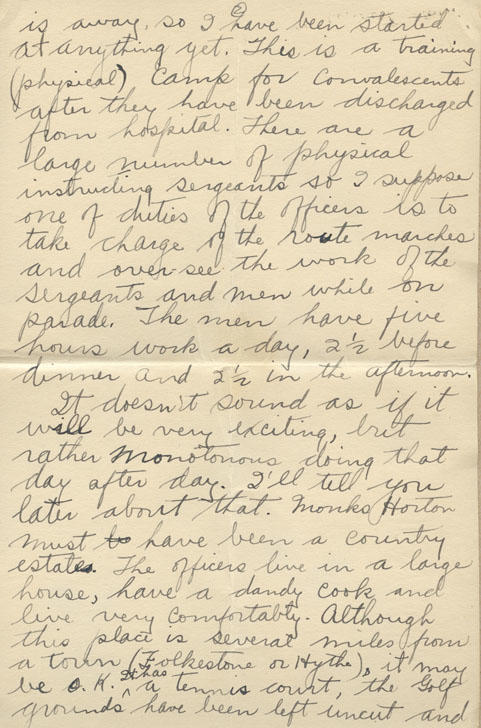 ②
is away, so I have been started
at anything yet. This is a training
(physical) camp for convalescents
after they have been discharged
from hospital. There are a
large number of physical
instructing sergeants so I suppose
one of duties of the officers is to
take charge of the route marches
and over-see the work of the
sergeants and men while on
parade. The men have five
hours work a day, 2½ before
dinner and 2½ in the afternoon.
It doesn't sound as if it
will be very exciting, but
rather monotonous doing that
day after day. I'll tell you
later about that. Monks Horton
must to have been a country
estate. The officers live in a large
house, have a dandy cook and
live very comfortably. Although
this place is several miles from
a town (Folkestone or Hythe), it may
be O.K. It has a tennis court, the Golf
grounds have been left uncut and